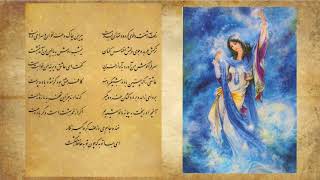 زلف آشفته و خوی کرده و خندان لب و مست پیرهن چاک و غزل خوان و صراحی در دست
نرگسش عربده جوی و لبش افسوس کنان نیم شب دوش به بالین من آمد بنشست
سر فرا گوش من آورد به آواز حزین گفت ای عاشق دیرینه من خوابت هست
عاشقی را که چنین باده شبگیر دهند کافر عشق بود گر نشود باده پرست
برو ای زاهد و بر دردکشان خرده مگیر که ندادند جز این تحفه به ما روز الست
آنچه او ریخت به پیمانه ما نوشیدیم اگر از خمر بهشت است وگر باده مست
خنده جام می و زلف گره گیر نگار
ای بسا توبه که چون توبه حافظ بشکست